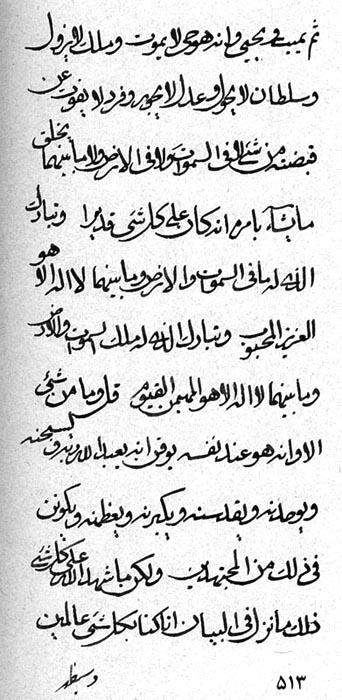 ثم يميت و يحيي و انه هو حي لا يموت و ملك لا يزول
و سلطان لا يحول و عدل لا يجور و فرد لا يفوت عن
قبضته من شئ لا في السموات و لا في الارض و لا ما بينهما يخلق
ما يشاء بامره انه كان على كل شئ قديرا و تبارك
الذي له ما في السموات و الارض و ما بينهما لا اله الا هو
العزيز المحبوب و تبارك الذي له ملك السموات و الارض
و ما بينهما لا اله الا هو المهيمن القيوم قل و ما من شئ
الا و انه هو عند نفسه يوقن انه يعبد الله ربه و يسبحنه
و يوحدنه و يقدسنه و يكبرنه و يعظمنه و يكونن
في ذلك من المجتهدين و لكن ما شهد الله على كل شئ
ذلك ما نزل في البيان انا كنا بكل شئ عالمين
٥١٣